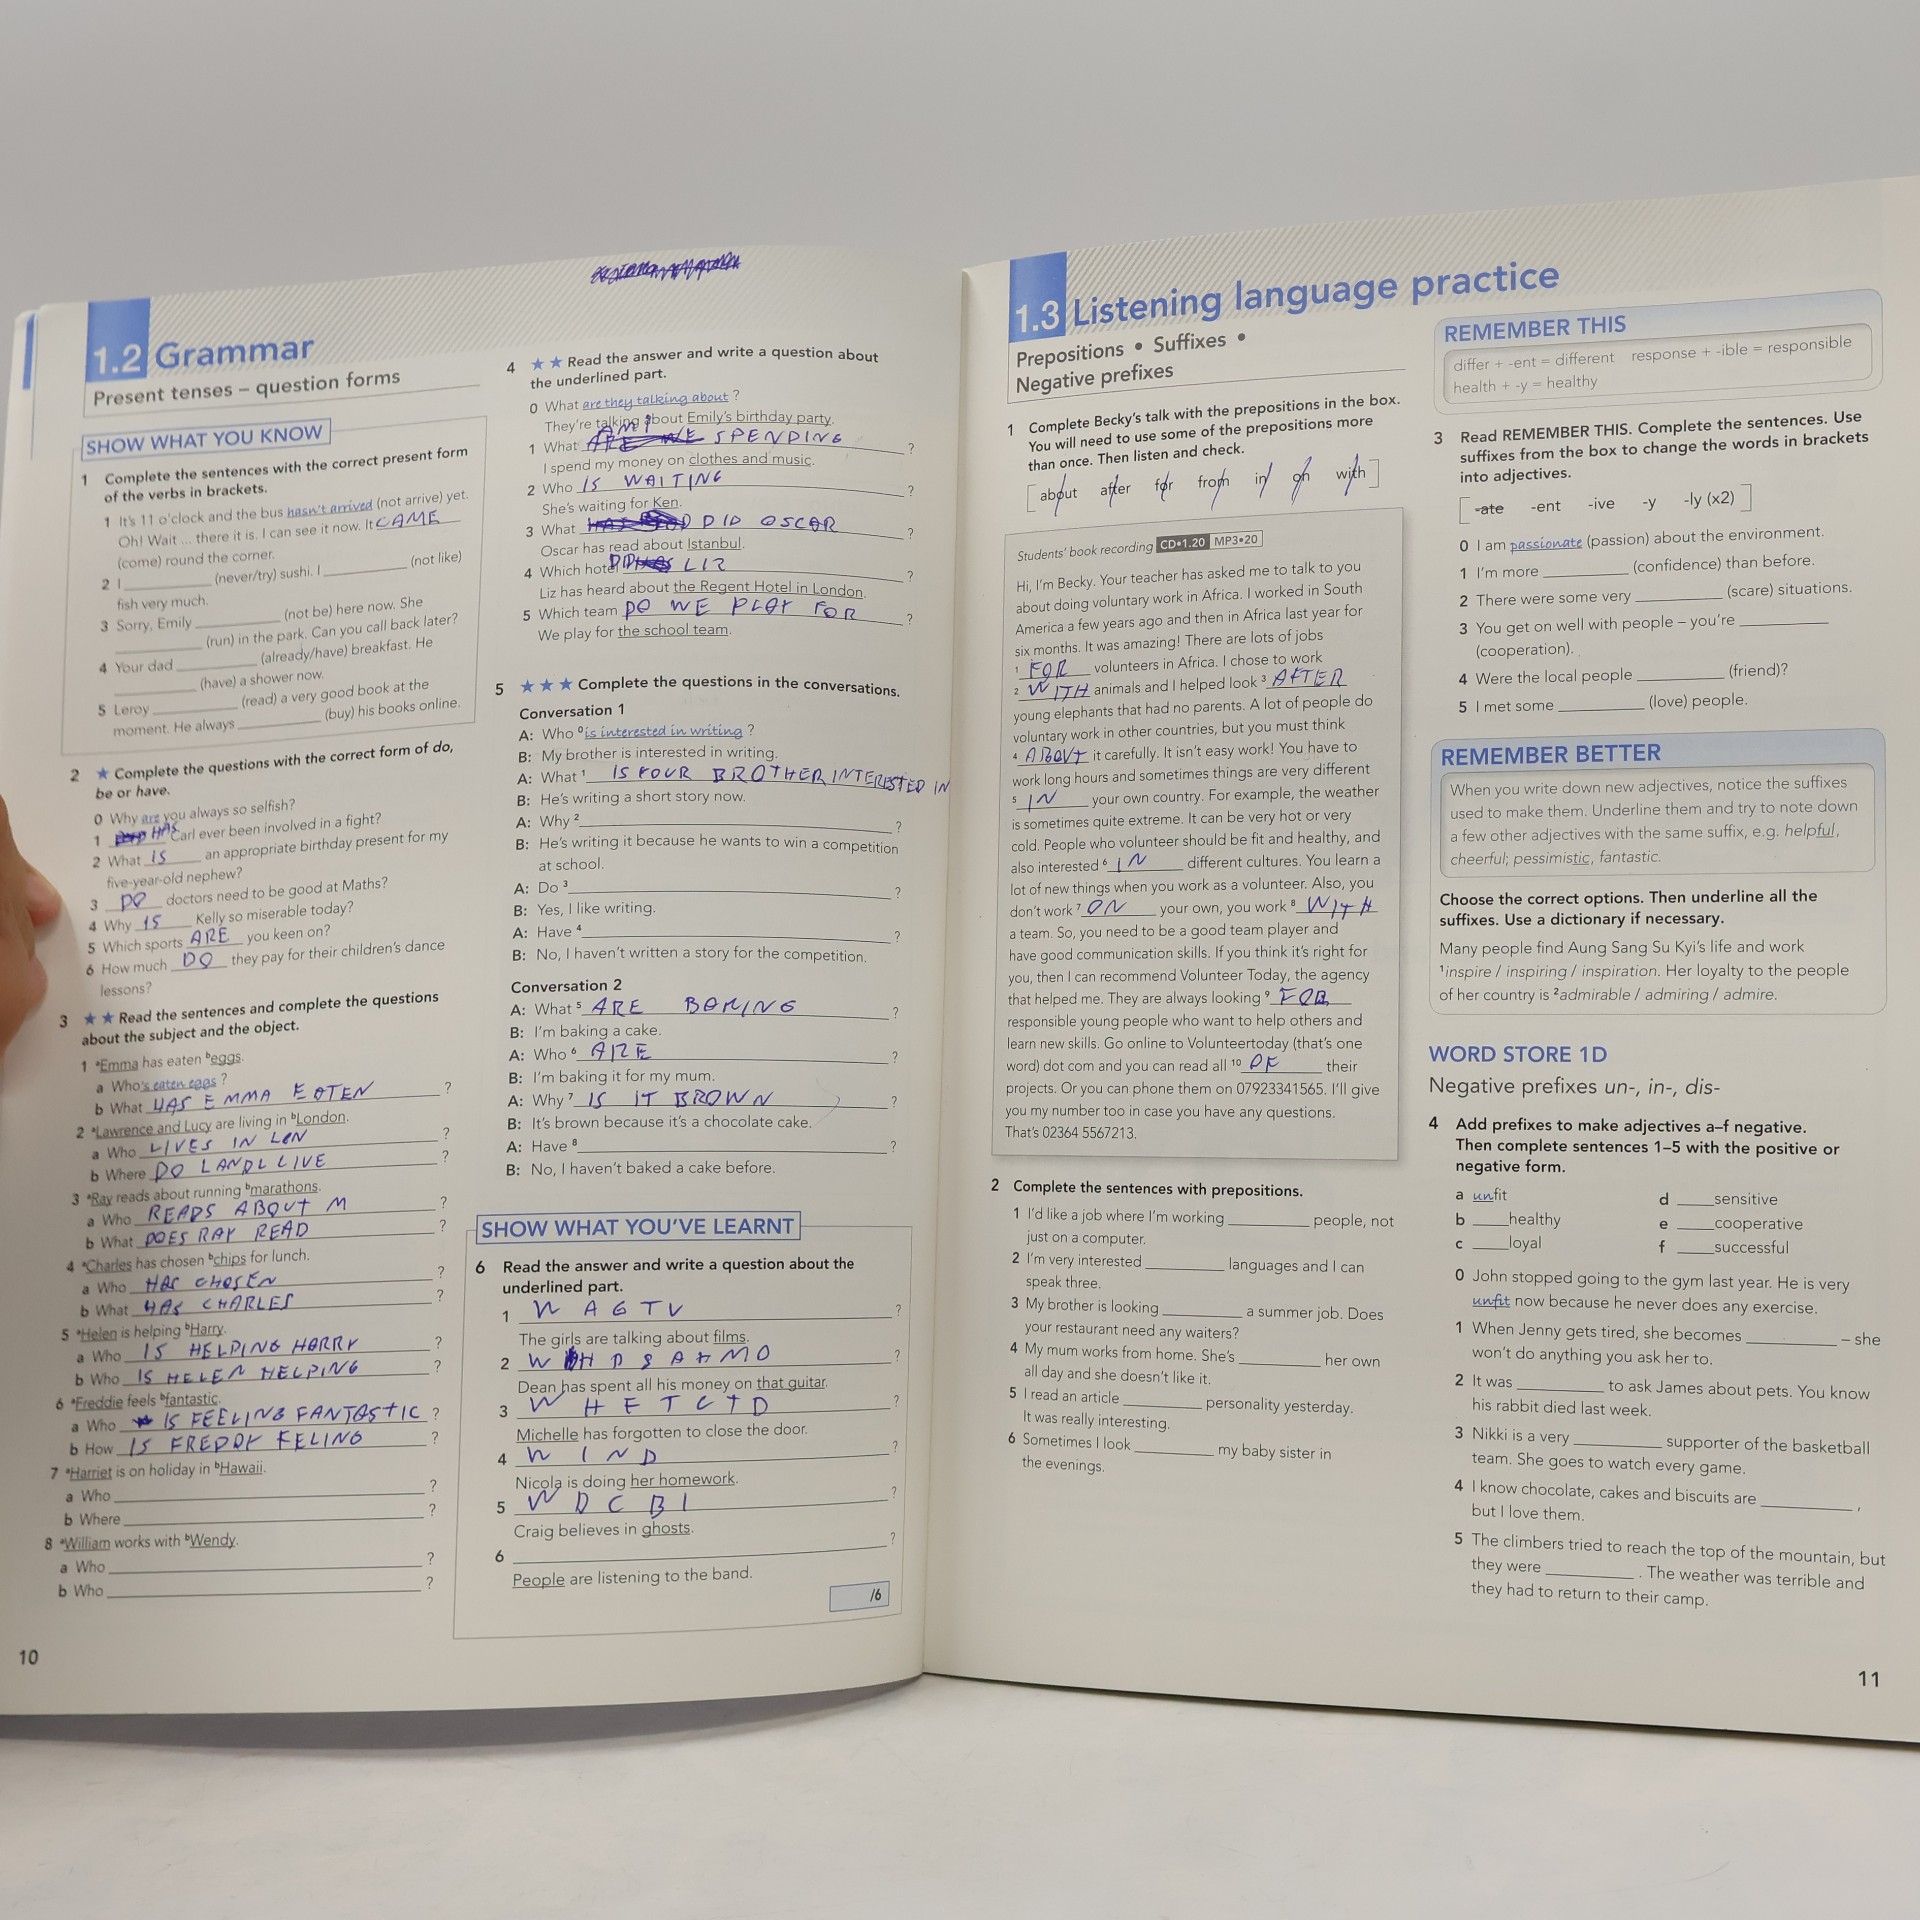 1.2 Grammar
Present tenses – question forms
SHOW WHAT YOU KNOW
1 Complete the sentences with the correct present form
of the verbs in brackets.
1 It's 11 o'clock and the bus hasn't arrived (not arrive) yet.
Oh! Wait ... there it is. I can see it now. It CAME
(come) round the corner.
2 I ________ (never/try) sushi. I ________ (not like)
fish very much.
3 Sorry, Emily ________ (not be) here now. She
________ (run) in the park. Can you call back later?
4 Your dad ________ (already/have) breakfast. He
________ (have) a shower now.
5 Leroy ________ (read) a very good book at the
moment. He always ________ (buy) his books online.
2 ★ Complete the questions with the correct form of do,
be or have.
0 Why are you always so selfish?
1 HAS Carl ever been involved in a fight?
2 What IS an appropriate birthday present for my
five-year-old nephew?
3 DO doctors need to be good at Maths?
4 Why IS Kelly so miserable today?
5 Which sports ARE you keen on?
6 How much DO they pay for their children's dance
lessons?
3 ★★ Read the sentences and complete the questions
about the subject and the object.
1 ªEmma has eaten ᵇeggs.
a Who's eaten eggs ?
b What HAS EMMA EATEN ?
2 ªLawrence and Lucy are living in ᵇLondon.
a Who LIVES IN LON ?
b Where DO LANDL LIVE ?
3 ªRay reads about running ᵇmarathons.
a Who READS ABOUT M ?
b What DOES RAY READ ?
4 ªCharles has chosen ᵇchips for lunch.
a Who HAS CHOSEN ?
b What HAS CHARLES ?
5 ªHelen is helping ᵇHarry.
a Who IS HELPING HARRY ?
b Who IS HELEN HELPING ?
6 ªFreddie feels ᵇfantastic.
a Who IS FEELING FANTASTIC ?
b How IS FREDDY FELING ?
7 ªHarriet is on holiday in ᵇHawaii.
a Who ________ ?
b Where ________ ?
8 ªWilliam works with ᵇWendy.
a Who ________ ?
b Who ________ ?
10
4 ★★ Read the answer and write a question about
the underlined part.
0 What are they talking about ?
They're talking about Emily's birthday party.
1 What AM I SPENDING ?
I spend my money on clothes and music.
2 Who IS WAITING ?
She's waiting for Ken.
3 What DID OSCAR ?
Oscar has read about Istanbul.
4 Which hotel LIZ ?
Liz has heard about the Regent Hotel in London.
5 Which team DO WE PLAY FOR ?
We play for the school team.
5 ★★★ Complete the questions in the conversations.
Conversation 1
A: Who ⁰is interested in writing ?
B: My brother is interested in writing.
A: What ¹ IS YOUR BROTHER INTERESTED IN
B: He's writing a short story now.
A: Why ² ________ ?
B: He's writing it because he wants to win a competition
at school.
A: Do ³ ________ ?
B: Yes, I like writing.
A: Have ⁴ ________ ?
B: No, I haven't written a story for the competition.
Conversation 2
A: What ⁵ ARE BAKING ?
B: I'm baking a cake.
A: Who ⁶ ARE ?
B: I'm baking it for my mum.
A: Why ⁷ IS IT BROWN ?
B: It's brown because it's a chocolate cake.
A: Have ⁸ ________ ?
B: No, I haven't baked a cake before.
SHOW WHAT YOU'VE LEARNT
6 Read the answer and write a question about the
underlined part.
1 W A G T V ?
The girls are talking about films.
2 W H D S A H M O ?
Dean has spent all his money on that guitar.
3 W H F T C T D
Michelle has forgotten to close the door.
4 W I N D ?
Nicola is doing her homework.
5 W D C B I ?
Craig believes in ghosts.
6 ________ ?
People are listening to the band.
/6
1.3 Listening language practice
Prepositions • Suffixes •
Negative prefixes
1 Complete Becky's talk with the prepositions in the box.
You will need to use some of the prepositions more
than once. Then listen and check.
[ about after for from in on with ]
Students' book recording CD•1.20 MP3•20
Hi, I'm Becky. Your teacher has asked me to talk to you
about doing voluntary work in Africa. I worked in South
America a few years ago and then in Africa last year for
six months. It was amazing! There are lots of jobs
¹ FOR volunteers in Africa. I chose to work
² WITH animals and I helped look ³ AFTER
young elephants that had no parents. A lot of people do
voluntary work in other countries, but you must think
⁴ ABOUT it carefully. It isn't easy work! You have to
work long hours and sometimes things are very different
⁵ IN your own country. For example, the weather
is sometimes quite extreme. It can be very hot or very
cold. People who volunteer should be fit and healthy, and
also interested ⁶ IN different cultures. You learn a
lot of new things when you work as a volunteer. Also, you
don't work ⁷ ON your own, you work ⁸ WITH
a team. So, you need to be a good team player and
have good communication skills. If you think it's right for
you, then I can recommend Volunteer Today, the agency
that helped me. They are always looking ⁹ FOR
responsible young people who want to help others and
learn new skills. Go online to Volunteertoday (that's one
word) dot com and you can read all ¹⁰ OF their
projects. Or you can phone them on 07923341565. I'll give
you my number too in case you have any questions.
That's 02364 5567213.
2 Complete the sentences with prepositions.
1 I'd like a job where I'm working ________ people, not
just on a computer.
2 I'm very interested ________ languages and I can
speak three.
3 My brother is looking ________ a summer job. Does
your restaurant need any waiters?
4 My mum works from home. She's ________ her own
all day and she doesn't like it.
5 I read an article ________ personality yesterday.
It was really interesting.
6 Sometimes I look ________ my baby sister in
the evenings.
REMEMBER THIS
differ + -ent = different response + -ible = responsible
health + -y = healthy
3 Read REMEMBER THIS. Complete the sentences. Use
suffixes from the box to change the words in brackets
into adjectives.
[ -ate -ent -ive -y -ly (x2) ]
0 I am passionate (passion) about the environment.
1 I'm more ________ (confidence) than before.
2 There were some very ________ (scare) situations.
3 You get on well with people – you're ________
(cooperation).
4 Were the local people ________ (friend)?
5 I met some ________ (love) people.
REMEMBER BETTER
When you write down new adjectives, notice the suffixes
used to make them. Underline them and try to note down
a few other adjectives with the same suffix, e.g. helpful,
cheerful; pessimistic, fantastic.
Choose the correct options. Then underline all the
suffixes. Use a dictionary if necessary.
Many people find Aung Sang Su Kyi's life and work
¹inspire / inspiring / inspiration. Her loyalty to the people
of her country is ²admirable / admiring / admire.
WORD STORE 1D
Negative prefixes un-, in-, dis-
4 Add prefixes to make adjectives a–f negative.
Then complete sentences 1–5 with the positive or
negative form.
a unfit d ____sensitive
b ____healthy e ____cooperative
c ____loyal f ____successful
0 John stopped going to the gym last year. He is very
unfit now because he never does any exercise.
1 When Jenny gets tired, she becomes ________ – she
won't do anything you ask her to.
2 It was ________ to ask James about pets. You know
his rabbit died last week.
3 Nikki is a very ________ supporter of the basketball
team. She goes to watch every game.
4 I know chocolate, cakes and biscuits are ________ ,
but I love them.
5 The climbers tried to reach the top of the mountain, but
they were ________ . The weather was terrible and
they had to return to their camp.
11